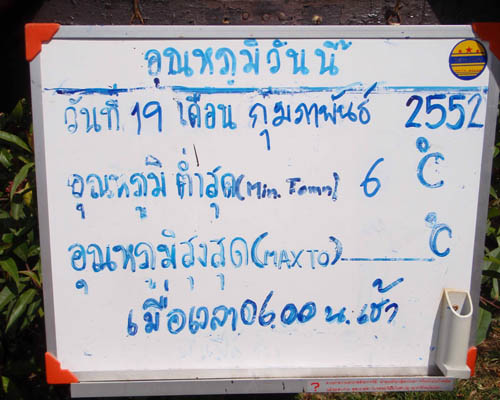 อุณหภูมิวันนี้
วันที่ 19 เดือน กุมภาพันธ์ 2552
อุณหภูมิ ต่ำสุด (Min. Temp) 6 °C
อุณหภูมิสูงสุด (MAX TO) ______ °C
เมื่อเวลา 06.00 น. เช้า